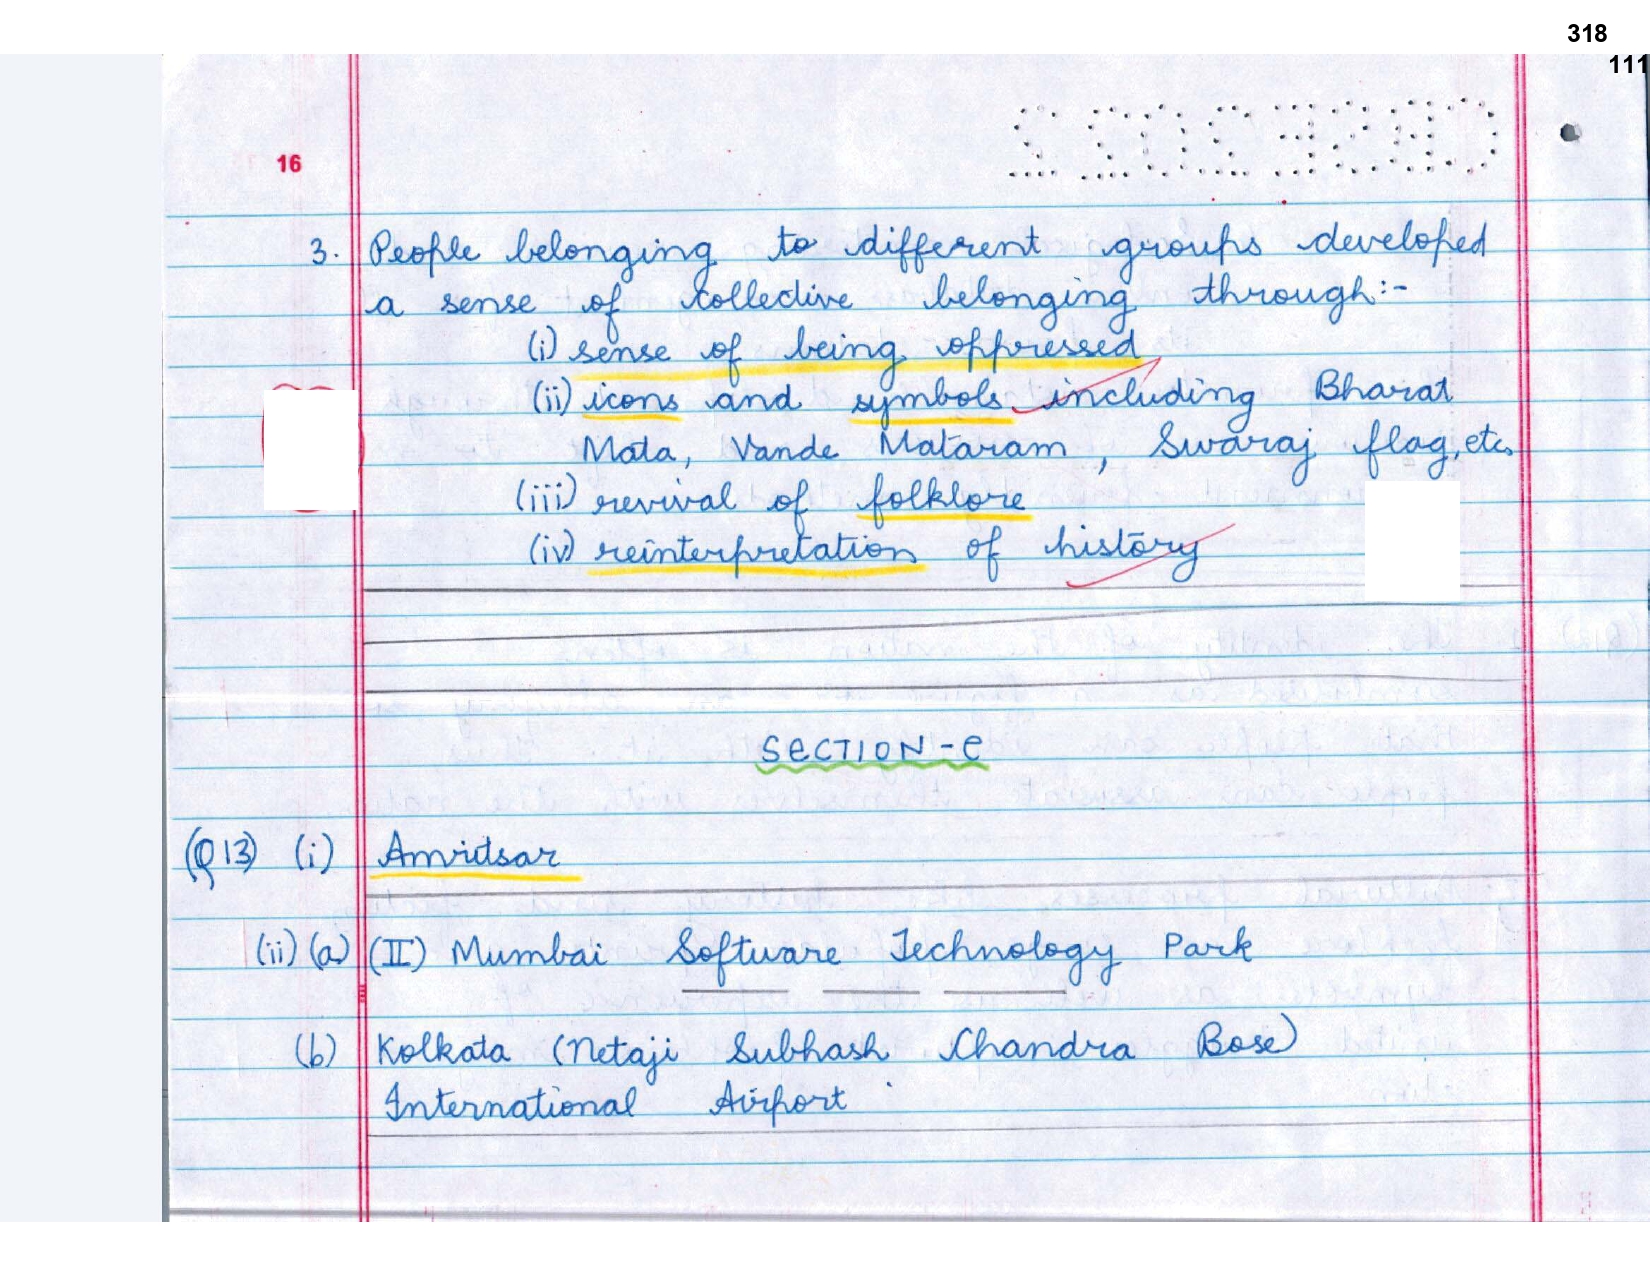 318
111
CBSE2022
16
3. People belonging to different groups developed
a sense of collective belonging through:-
(i) sense of being oppressed
(ii) icons and symbols including Bharat
Mata, Vande Mataram, Swaraj flag, etc.
(iii) revival of folklore
(iv) reinterpretation of history
SECTION-C
(Q13) (i) Amritsar
(ii) (a) (II) Mumbai Software Technology Park
(b) Kolkata (Netaji Subhash Chandra Bose)
International Airport